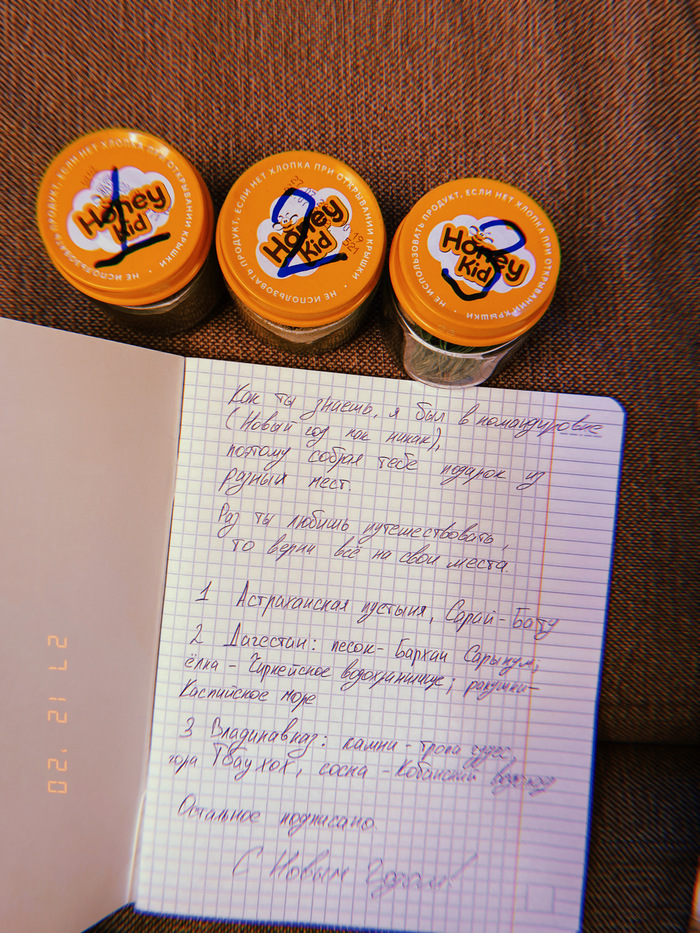 НЕ ИСПОЛЬЗОВАТЬ ПРОДУКТ, ЕСЛИ НЕТ ХЛОПКА ПРИ ОТКРЫВАНИИ КРЫШКИ
Honey
Kid
1
НЕ ИСПОЛЬЗОВАТЬ ПРОДУКТ, ЕСЛИ НЕТ ХЛОПКА ПРИ ОТКРЫВАНИИ КРЫШКИ
Honey
Kid
2
НЕ ИСПОЛЬЗОВАТЬ ПРОДУКТ, ЕСЛИ НЕТ ХЛОПКА ПРИ ОТКРЫВАНИИ КРЫШКИ
Honey
Kid
3
Как ты знаешь, я был в командировке
(Новый год как никак),
поэтому собрал тебе подарок из
разных мест.
Раз ты любишь путешествовать,
то верни всё на свои места.
1 Астраханская пустыня, Сарай-Бату
2 Дагестан: песок - Бархан Сарыкум;
ёлка - Чиркейское водохранилище; ракушки -
Каспийское море
3 Владикавказ: камни - тропа чудес,
гора Тбау хох, сосна - Кобанский
Остальное подписано.
С Новым Годом!
27 12 '02